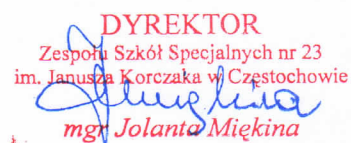 DYREKTOR
Zespołu Szkół Specjalnych nr 23
im. Janusza Korczaka w Częstochowie
mgr Jolanta Miękina